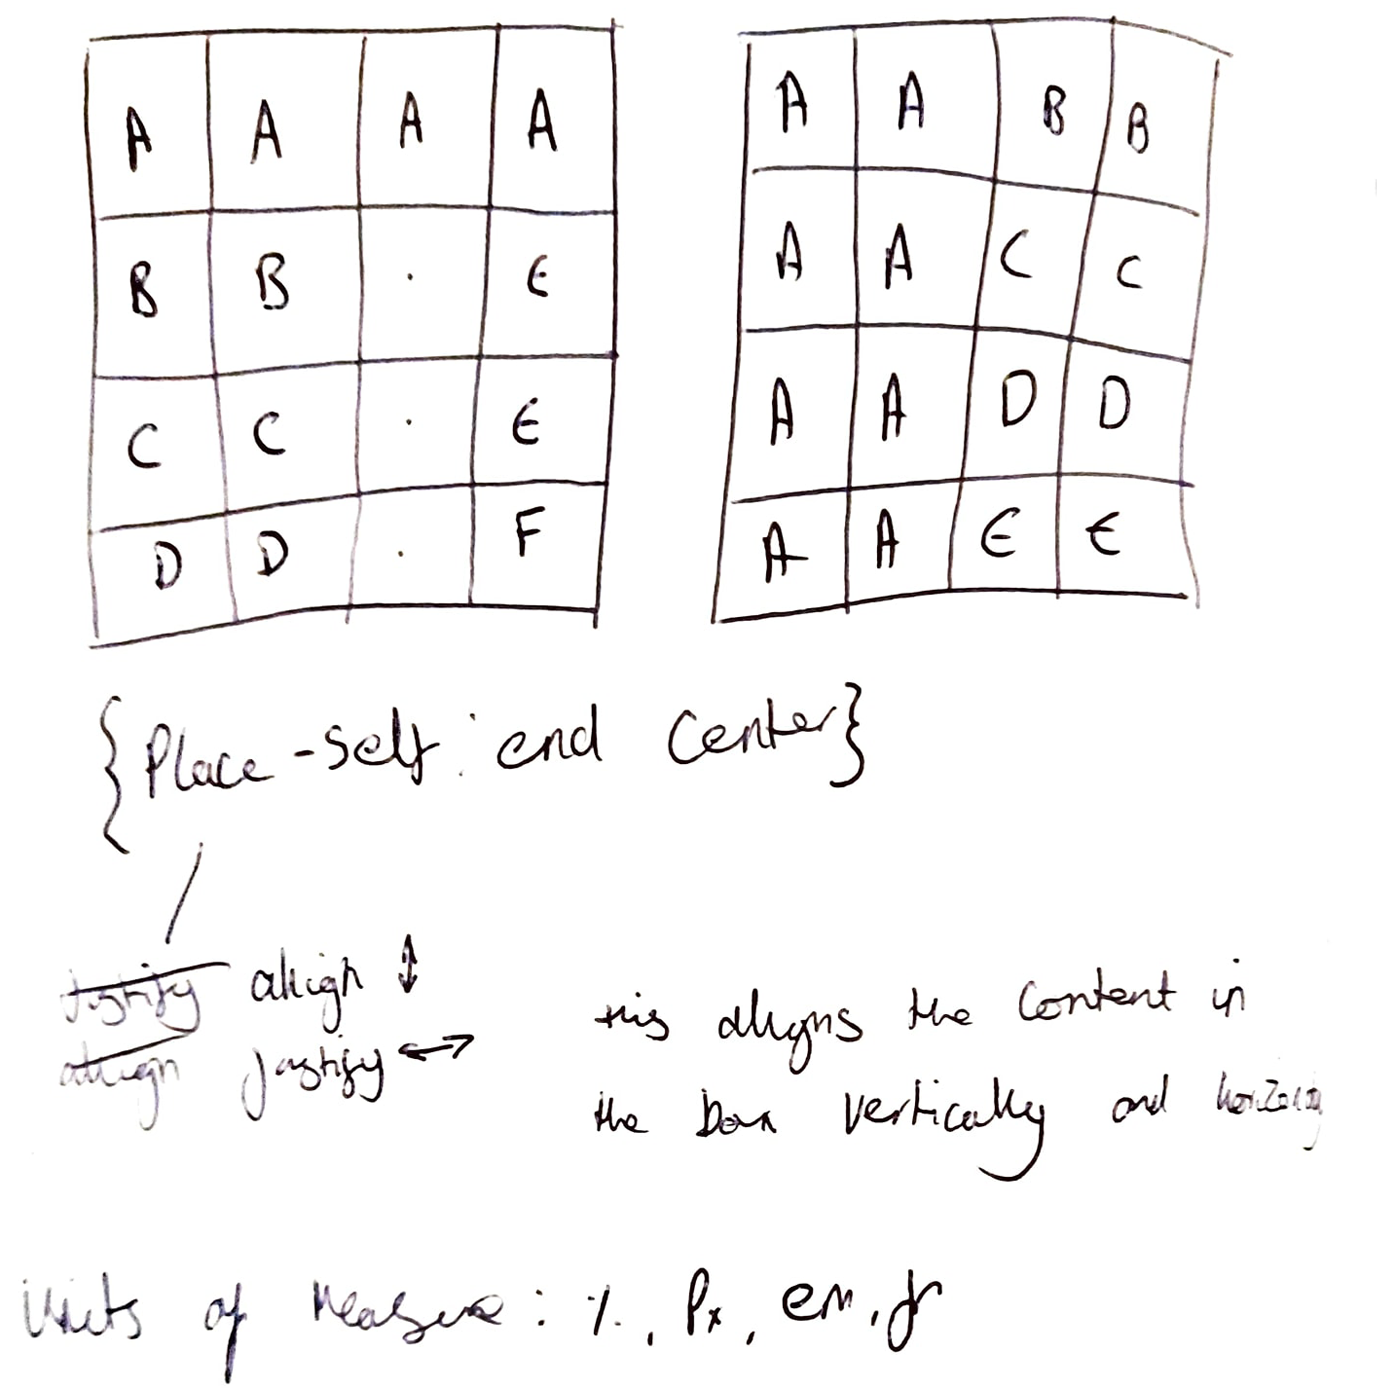 A A A A
B B . E
C C . E
D D . F
A A B B
A A C C
A A D D
A A E E
{Place-self: end center}
Justify align ↕
align justify ↔
this aligns the content in
the box vertically and
Units of Measure: %, Px, em, fr